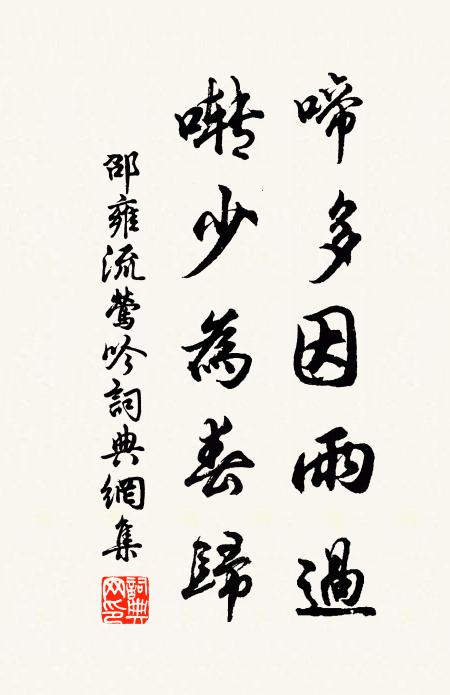 啼多因雨過
囀少為春歸
邵雍流鶯吟詞典網集
詞典網印